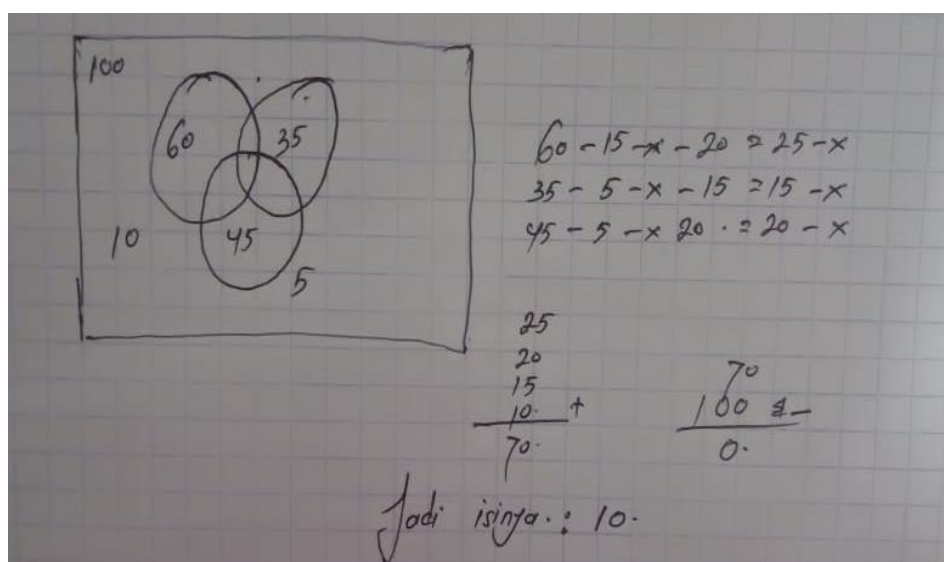 100
60 35
10 45
5
60 - 15 - x - 20 = 25 - x
35 - 5 - x - 15 = 15 - x
45 - 5 - x 20 . = 20 - x
25
20
15
10. +
70.
70
100 -
0.
Jadi isinya. : 10.